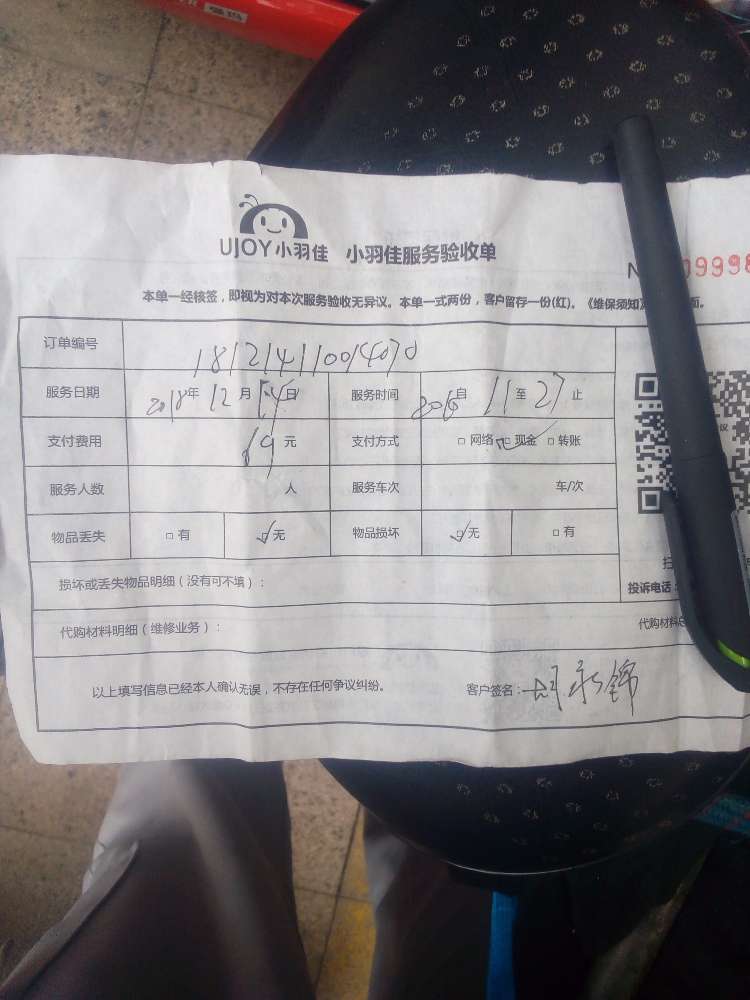 UJOY小羽佳 小羽佳服务验收单
09998
本单一经核签，即视为对本次服务验收无异议。本单一式两份，客户留存一份(红)。《维保须知》
订单编号 181214110014070
服务日期 2018年 12月 14日 服务时间 自 11 至 27 止
支付费用 69元 支付方式 □网络 □现金 □转账
服务人数 人 服务车次 车/次
物品丢失 □有 □无 物品损坏 □无 □有
损坏或丢失物品明细（没有可不填）：
投诉电话：
代购材料明细（维修业务）： 代购材料
以上填写信息已经本人确认无误，不存在任何争议纠纷。 客户签名：